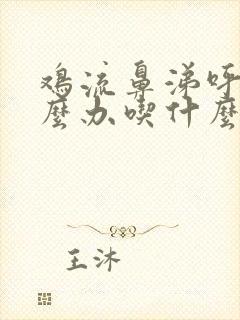 鸡流鼻涕呼
麼办喫什麼
王沐